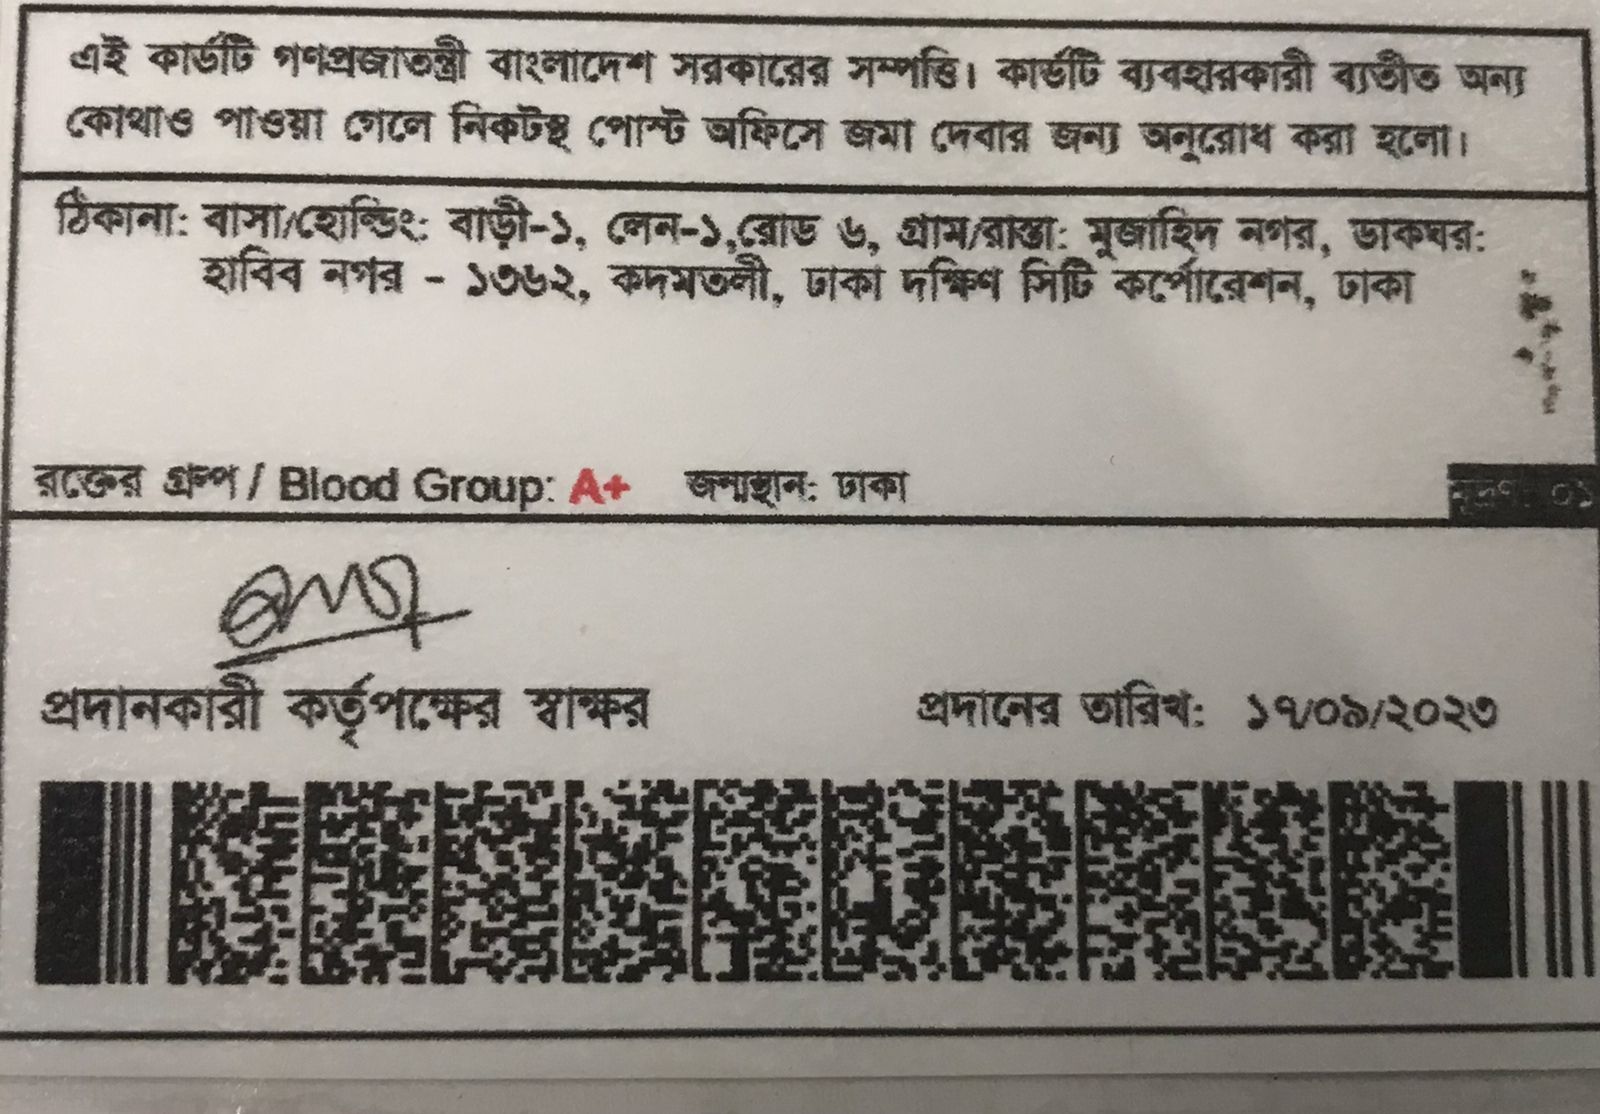 এই কার্ডটি গণপ্রজাতন্ত্রী বাংলাদেশ সরকারের সম্পত্তি। কার্ডটি ব্যবহারকারী ব্যতীত অন্য
কোথাও পাওয়া গেলে নিকটস্থ পোস্ট অফিসে জমা দেবার জন্য অনুরোধ করা হলো।
ঠিকানা: বাসা/হোল্ডিং: বাড়ী-১, লেন-১,রোড ৬, গ্রাম/রাস্তা: মুজাহিদ নগর, ডাকঘর:
হাবিব নগর - ১৩৬২, কদমতলী, ঢাকা দক্ষিণ সিটি কর্পোরেশন, ঢাকা
রক্তের গ্রুপ / Blood Group: A+ জন্মস্থান: ঢাকা
মুদ্রণ: ০১
প্রদানকারী কর্তৃপক্ষের স্বাক্ষর প্রদানের তারিখ: ১৭/০৯/২০২৩